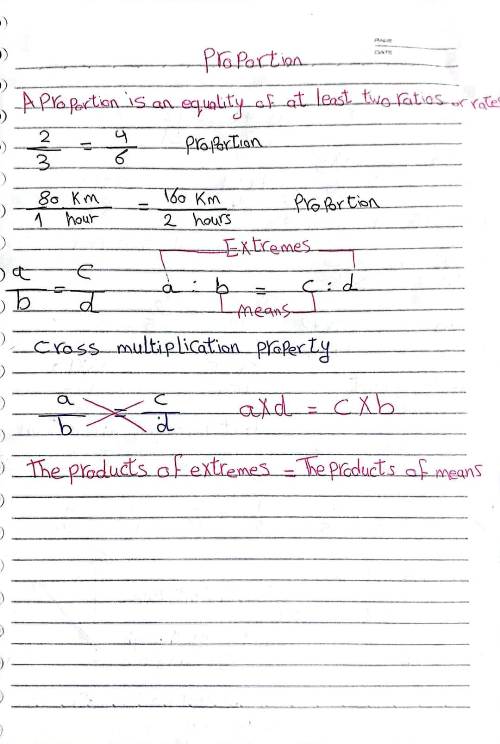 PAGE
DATE
Proportion
A Proportion is an equality of at least two ratios or rates
2/3 = 4/6 Proportion
80 Km/1 hour = 160 Km/2 hours Proportion
Extremes
a/b = c/d a : b = c : d
means
Cross multiplication property
a/b = c/d a x d = c x b
The products of extremes = The products of means